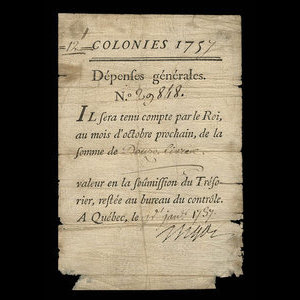 =12= COLONIES 1757
Dépenses générales.
N.º 29848.
IL sera tenu compte par le Roi,
au mois d'octobre prochain, de la
somme de Douze Livres
valeur en la soûmission du Tréso-
rier, restée au bureau du contrôle.
A Québec, le 1757